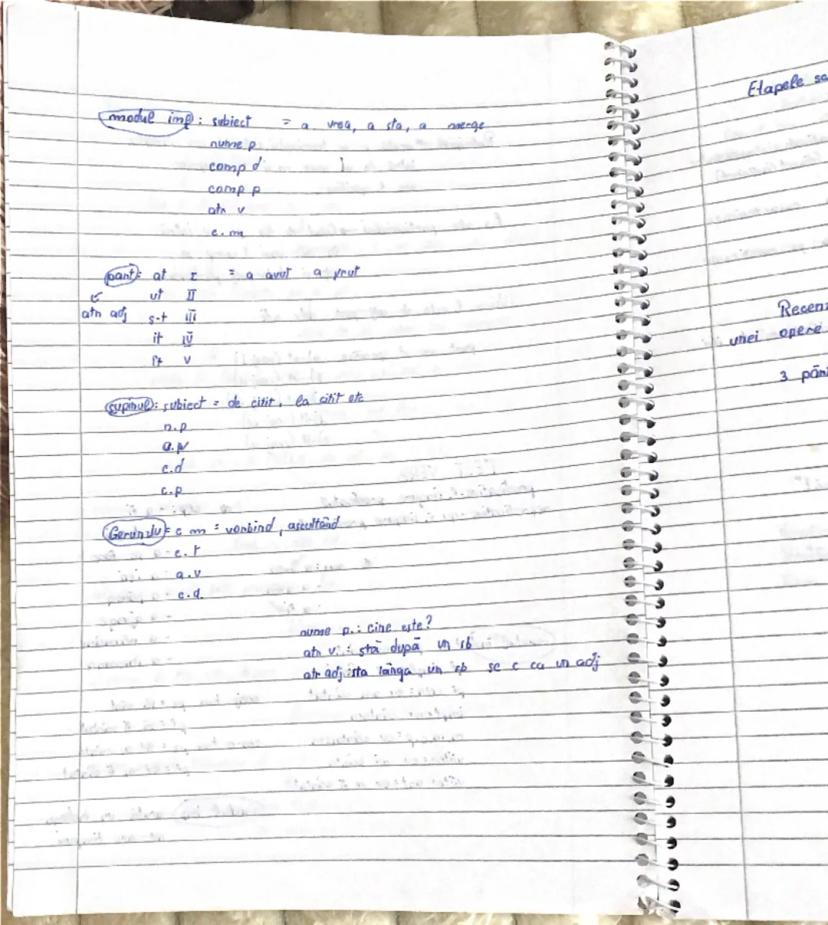 modul inf: subiect = a vrea, a sta, a merge
nume p
comp d
comp p
atr v
c. m
part: at I = a avut a vrut
ut II
atr adj s-t III
it IV
ît V
supinul: subiect = de citit, la citit etc
n.p
a.v
c.d
c.p
Gerunziu = c m = vorbind, ascultând
c. t
a.v
c.d.
nume p.: cine este?
atr v: stă după un sb
atr adj: sta lânga un sb se c ca un adj
Etapele
Recen
unei opere
3 părț